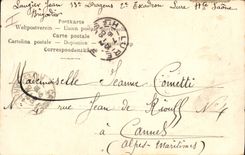 Laugier Jean 13e Dragons 2e Escadron Lure Hte Saône
Brigadier
Postkarte
Weltpostverein - Union postale
Carte postale
Cartolina postale - Dopisnice
Correspondenzkarte
LURE
Mademoiselle Jeanne
N° 4 rue Jean de Riouff N° 4
à Cannes
(Alpes-Maritimes)